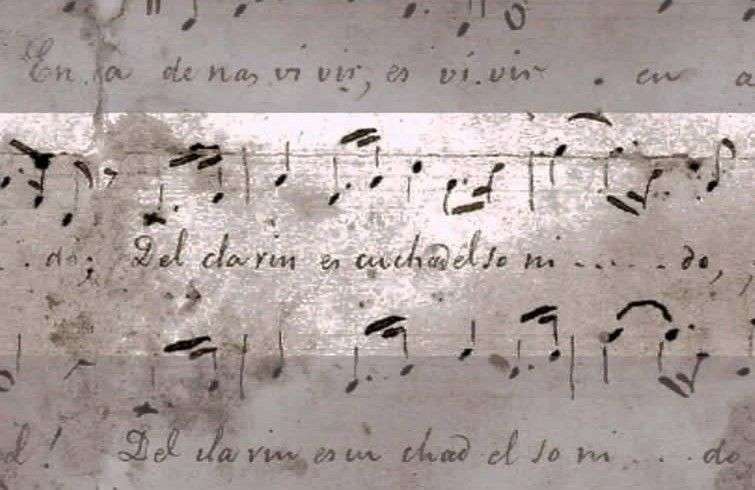 En ca de nas vi vir, es vi.vir . en a
. . do; Del cla rin es cuchad el so ni . . . . . do,
d! Del cla rin es cu chad el so ni . . . do